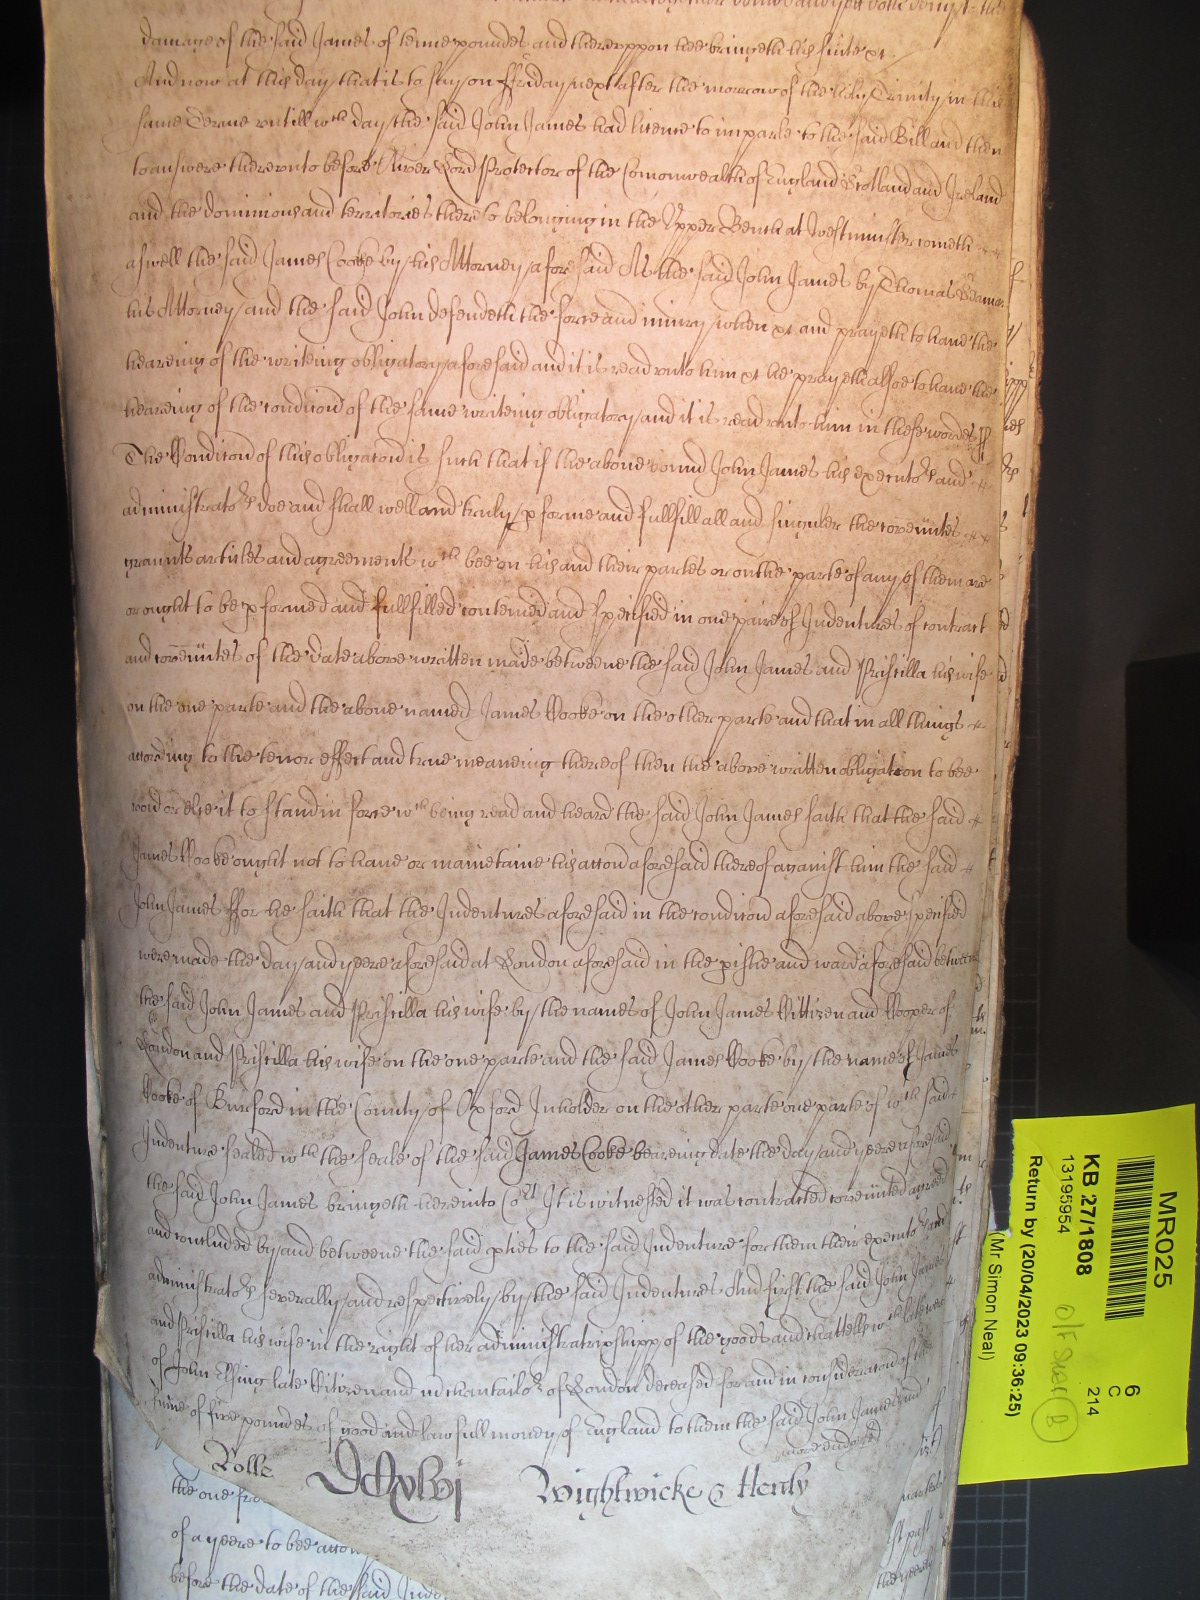 damage of the said James of tenne poundes and thereuppon hee bringeth his suite &c
And now at this day that is to say on ffriday next after the morrow of the holy Trinity in this
same Terme untill wch day the said John James had licence to imparle to the said Bill and then
to answere thereunto before Oliver Lord Protector of the Comonwealth of England Scotland and Ireland
and the dominions and territories thereto belonging in the Upper Bench at Westminster cometh
aswell the said James Cooke by his Attorney aforesaid As the said John James by Thomas
his Attorney and the said John defendeth the force and iniury when &c and prayeth to have the
heareing of the writeing obligatory aforesaid and it is read unto him &c he prayeth alsoe to have the
heareing of the condicon of the same writeing obligatory and it is read unto him in these wordes ss
The Condicon of this obligacon is such that if the above bound John James his executors and
administrators doe and shall well and truly pforme and fullfill all and singuler the covenntes
graunts articles and agreements wch bee on his and their partes or on the parte of any of them are
or ought to be pformed and fullfilled conteined and specified in one paire of Indentures of contract
and covenntes of the date above written made betweene the said John James and Priscilla his wife
on the one parte and the above named James Cooke on the other parte and that in all things
according to the tenor effect and true meaneing thereof then the above written obligation to bee
void or else it to stand in force wch being read and heard the said John James saith that the said
James Cooke ought not to have or mainetaine his accon aforesaid thereof against him the said
John James ffor he saith that the Indentures aforesaid in the condicon aforesaid above specified
were made the day and yeere aforesaid at London aforesaid in the pishe and ward aforesaid betweene
the said John James and Priscilla his wife by the names of John James Cittizen and Cooper of
London and Priscilla his wife on the one parte and the said James Cooke by the name of James
Cooke of Burford in the County of Oxford Inholder on the other parte one parte of wch said
Indenture sealed wth the seale of the said James Cooke beareing date the day and yeere aforesaid
the said John James bringeth hereinto Cort It is witnessed it was contracted covennted agreed
and concluded by and betweene the said pties to the said Indenture for them their executors and
administrators severally and respectively by the said Indentures And first the said John James
and Priscilla his wife in the right of her administratrixshipp of the goods and chattells wch late were
of John late Cittizen and mchantailor of London deceased for and in consideracon of the
sume of five poundes of good and lawfull money of England to them the said John James and
more endorsed
Rolle DCCxlvi Wightwicke & Henly
the one
of a yeere to bee
before the date of the said
MR025
6
C
214
KB 27/1808
13195954
Return by (20/04/2023 09:36:25)
(Mr Simon Neal)